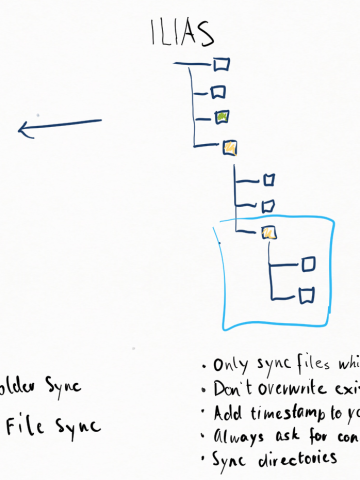 ILIAS
Sync
File Sync
• Only sync files
• Don't overwrite
• Add timestamp to
• Always ask for
• Sync directories